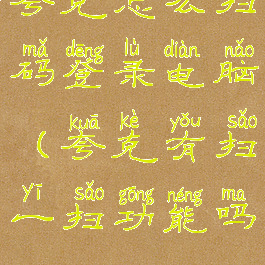 夸克怎么扫
mǎ dēng lù diàn nǎo
码登录电脑
kuā kè yǒu sǎo
（夸克有扫
yī sǎo gōng néng ma
一扫功能吗